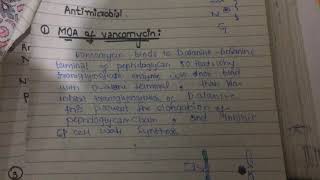 Antimicrobial
N
G
① MOA of vancomycin:
vancomycin binds to Dalanine-Dalanine
terminal of peptidoglycan so that's why
transglycosylase enzyme not bind
with Dalanine terminal, than
inhibit transglycosylation of D alanine
this prevent the elongation of
peptidoglycan chain, and inhibit
of cell wall synthesis